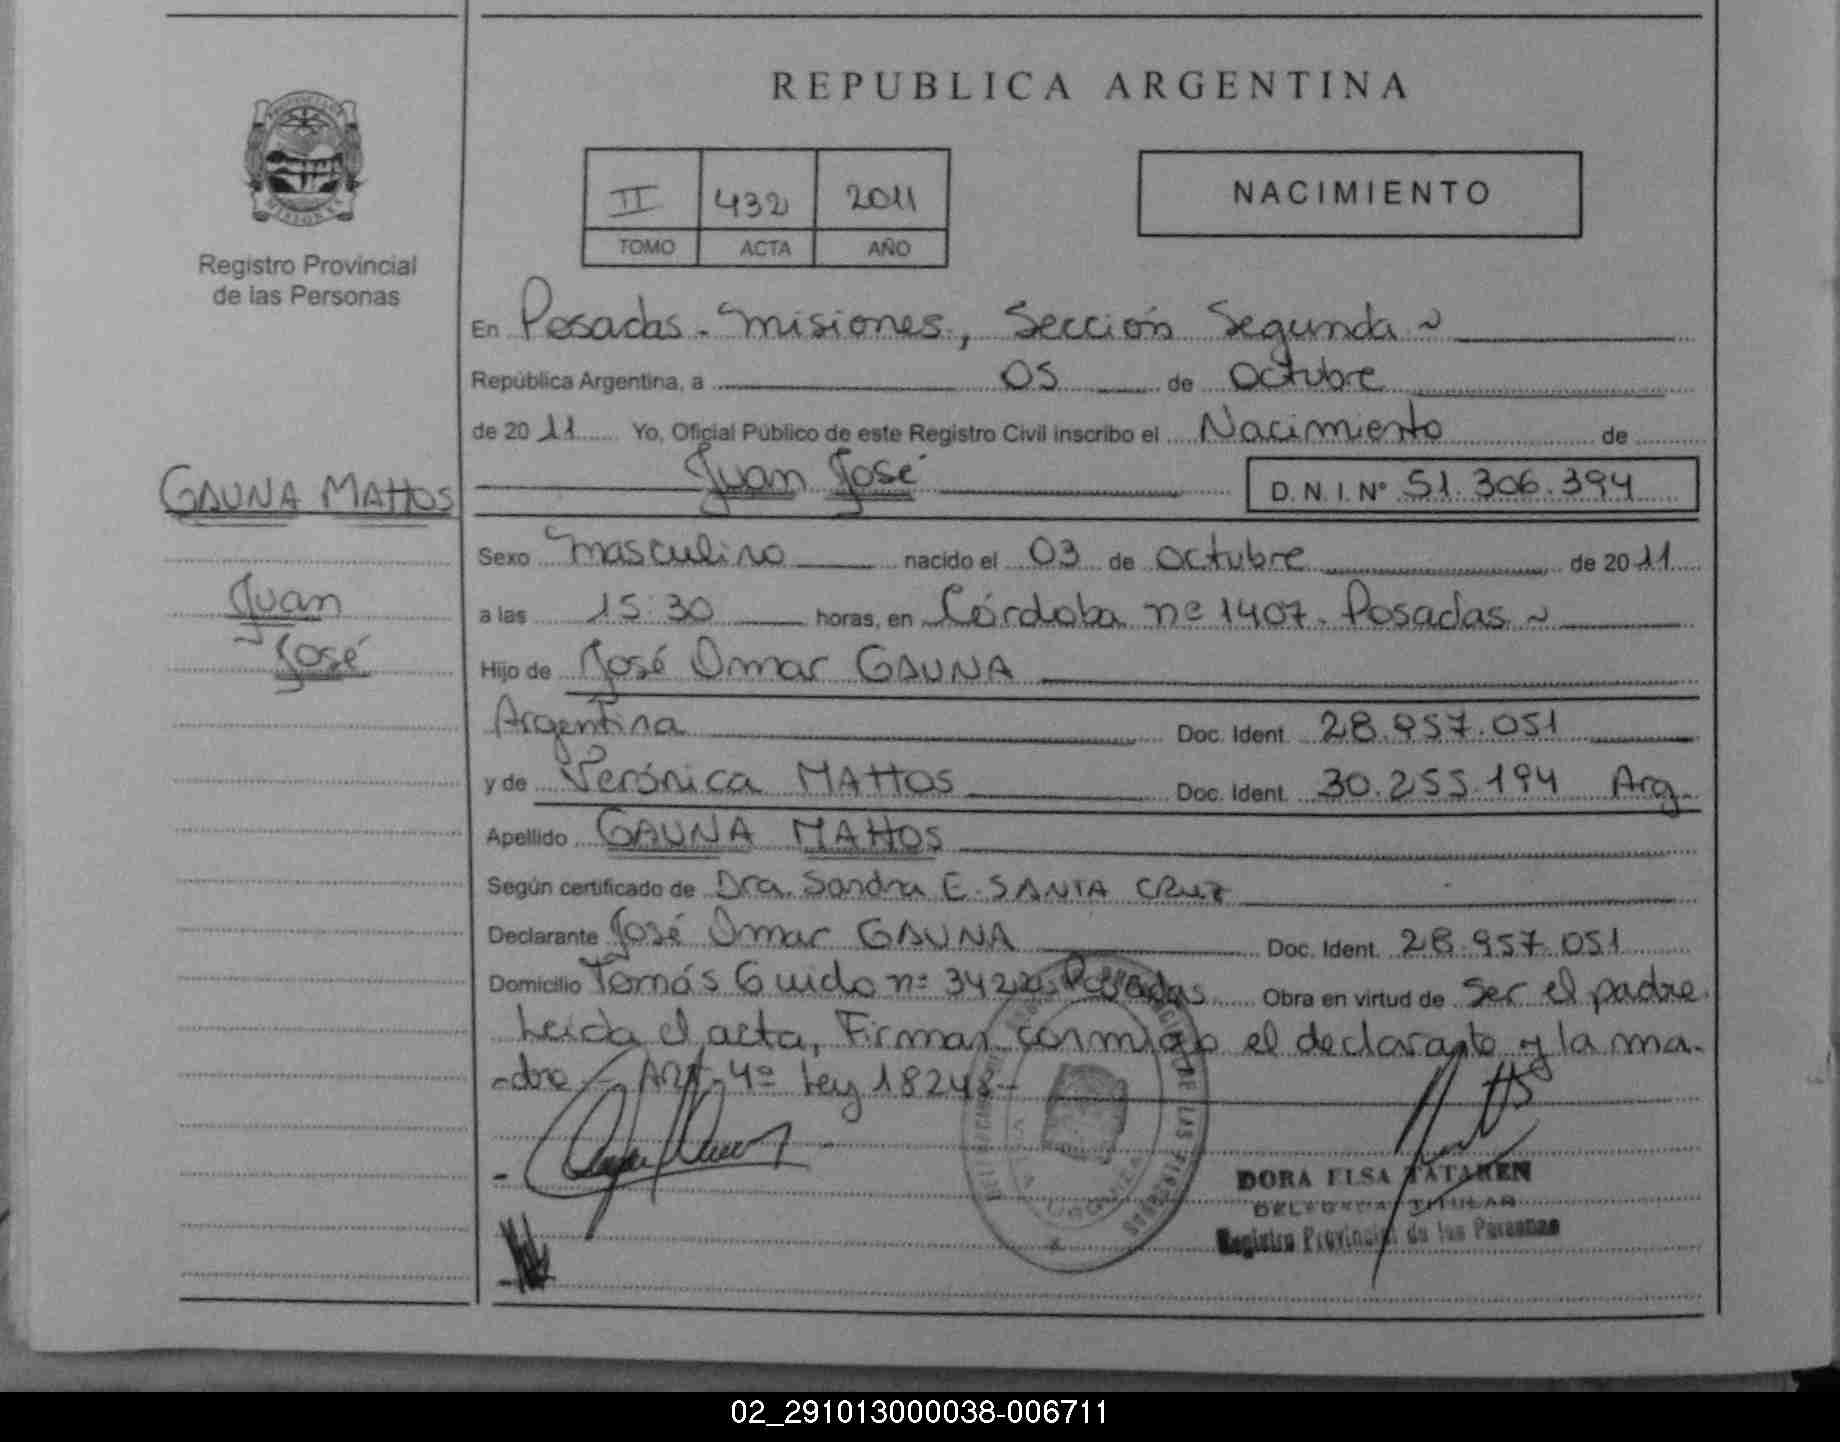 REPUBLICA ARGENTINA
II 432 2011
TOMO ACTA AÑO
NACIMIENTO
MISIONES
Registro Provincial
de las Personas
GAUNA MATTOS
Juan
José
En Posadas - Misiones, Sección Segunda
República Argentina, a 05 de Octubre
de 2011 Yo, Oficial Público de este Registro Civil inscribo el Nacimiento de
Juan José D. N. I. Nº 51.306.394
Sexo masculino nacido el 03 de octubre de 2011
a las 15:30 horas, en Córdoba nº 1407. Posadas
Hijo de José Omar GAUNA
Argentina Doc. Ident. 28.957.051
y de Verónica MATTOS Doc. Ident. 30.255.194 Arg.
Apellido GAUNA MATTOS
Según certificado de Dra. Sandra E. SANTA CRUZ
Declarante José Omar GAUNA Doc. Ident. 28.957.051
Domicilio Tomás Guido nº Posadas Obra en virtud de ser el padre.
Leída el acta, Firman conmigo el declarante y la ma-
-dre.- Art. 4º Ley 18248-
DORA ELSA TATAREN
DELEGADA TITULAR
Registro Provincial de las Personas
02_291013000038-006711